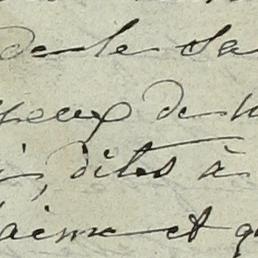 de le sa
peux de v
i, dites à
aime et q